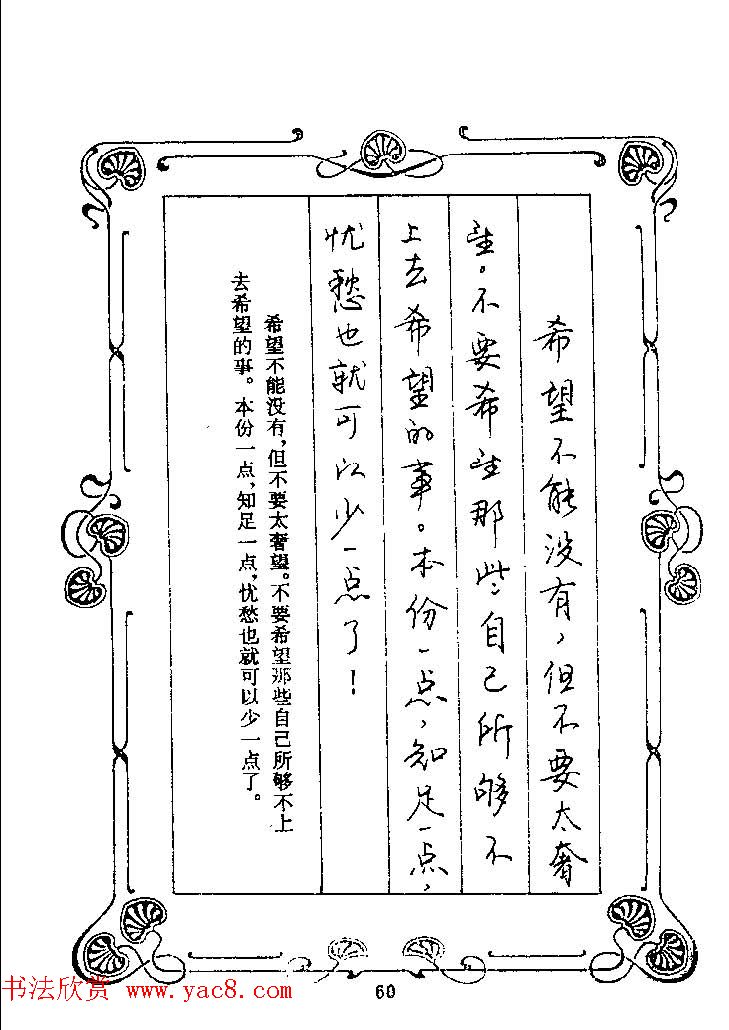 希望不能没有，但不要太奢
望。不要希望那些自己所够不
上去希望的事。本份一点，知足一点，
忧愁也就可以少一点了！
希望不能没有，但不要太奢望。不要希望那些自己所够不上
去希望的事。本份一点，知足一点，忧愁也就可以少一点了。
60
书法欣赏 www.yac8.com